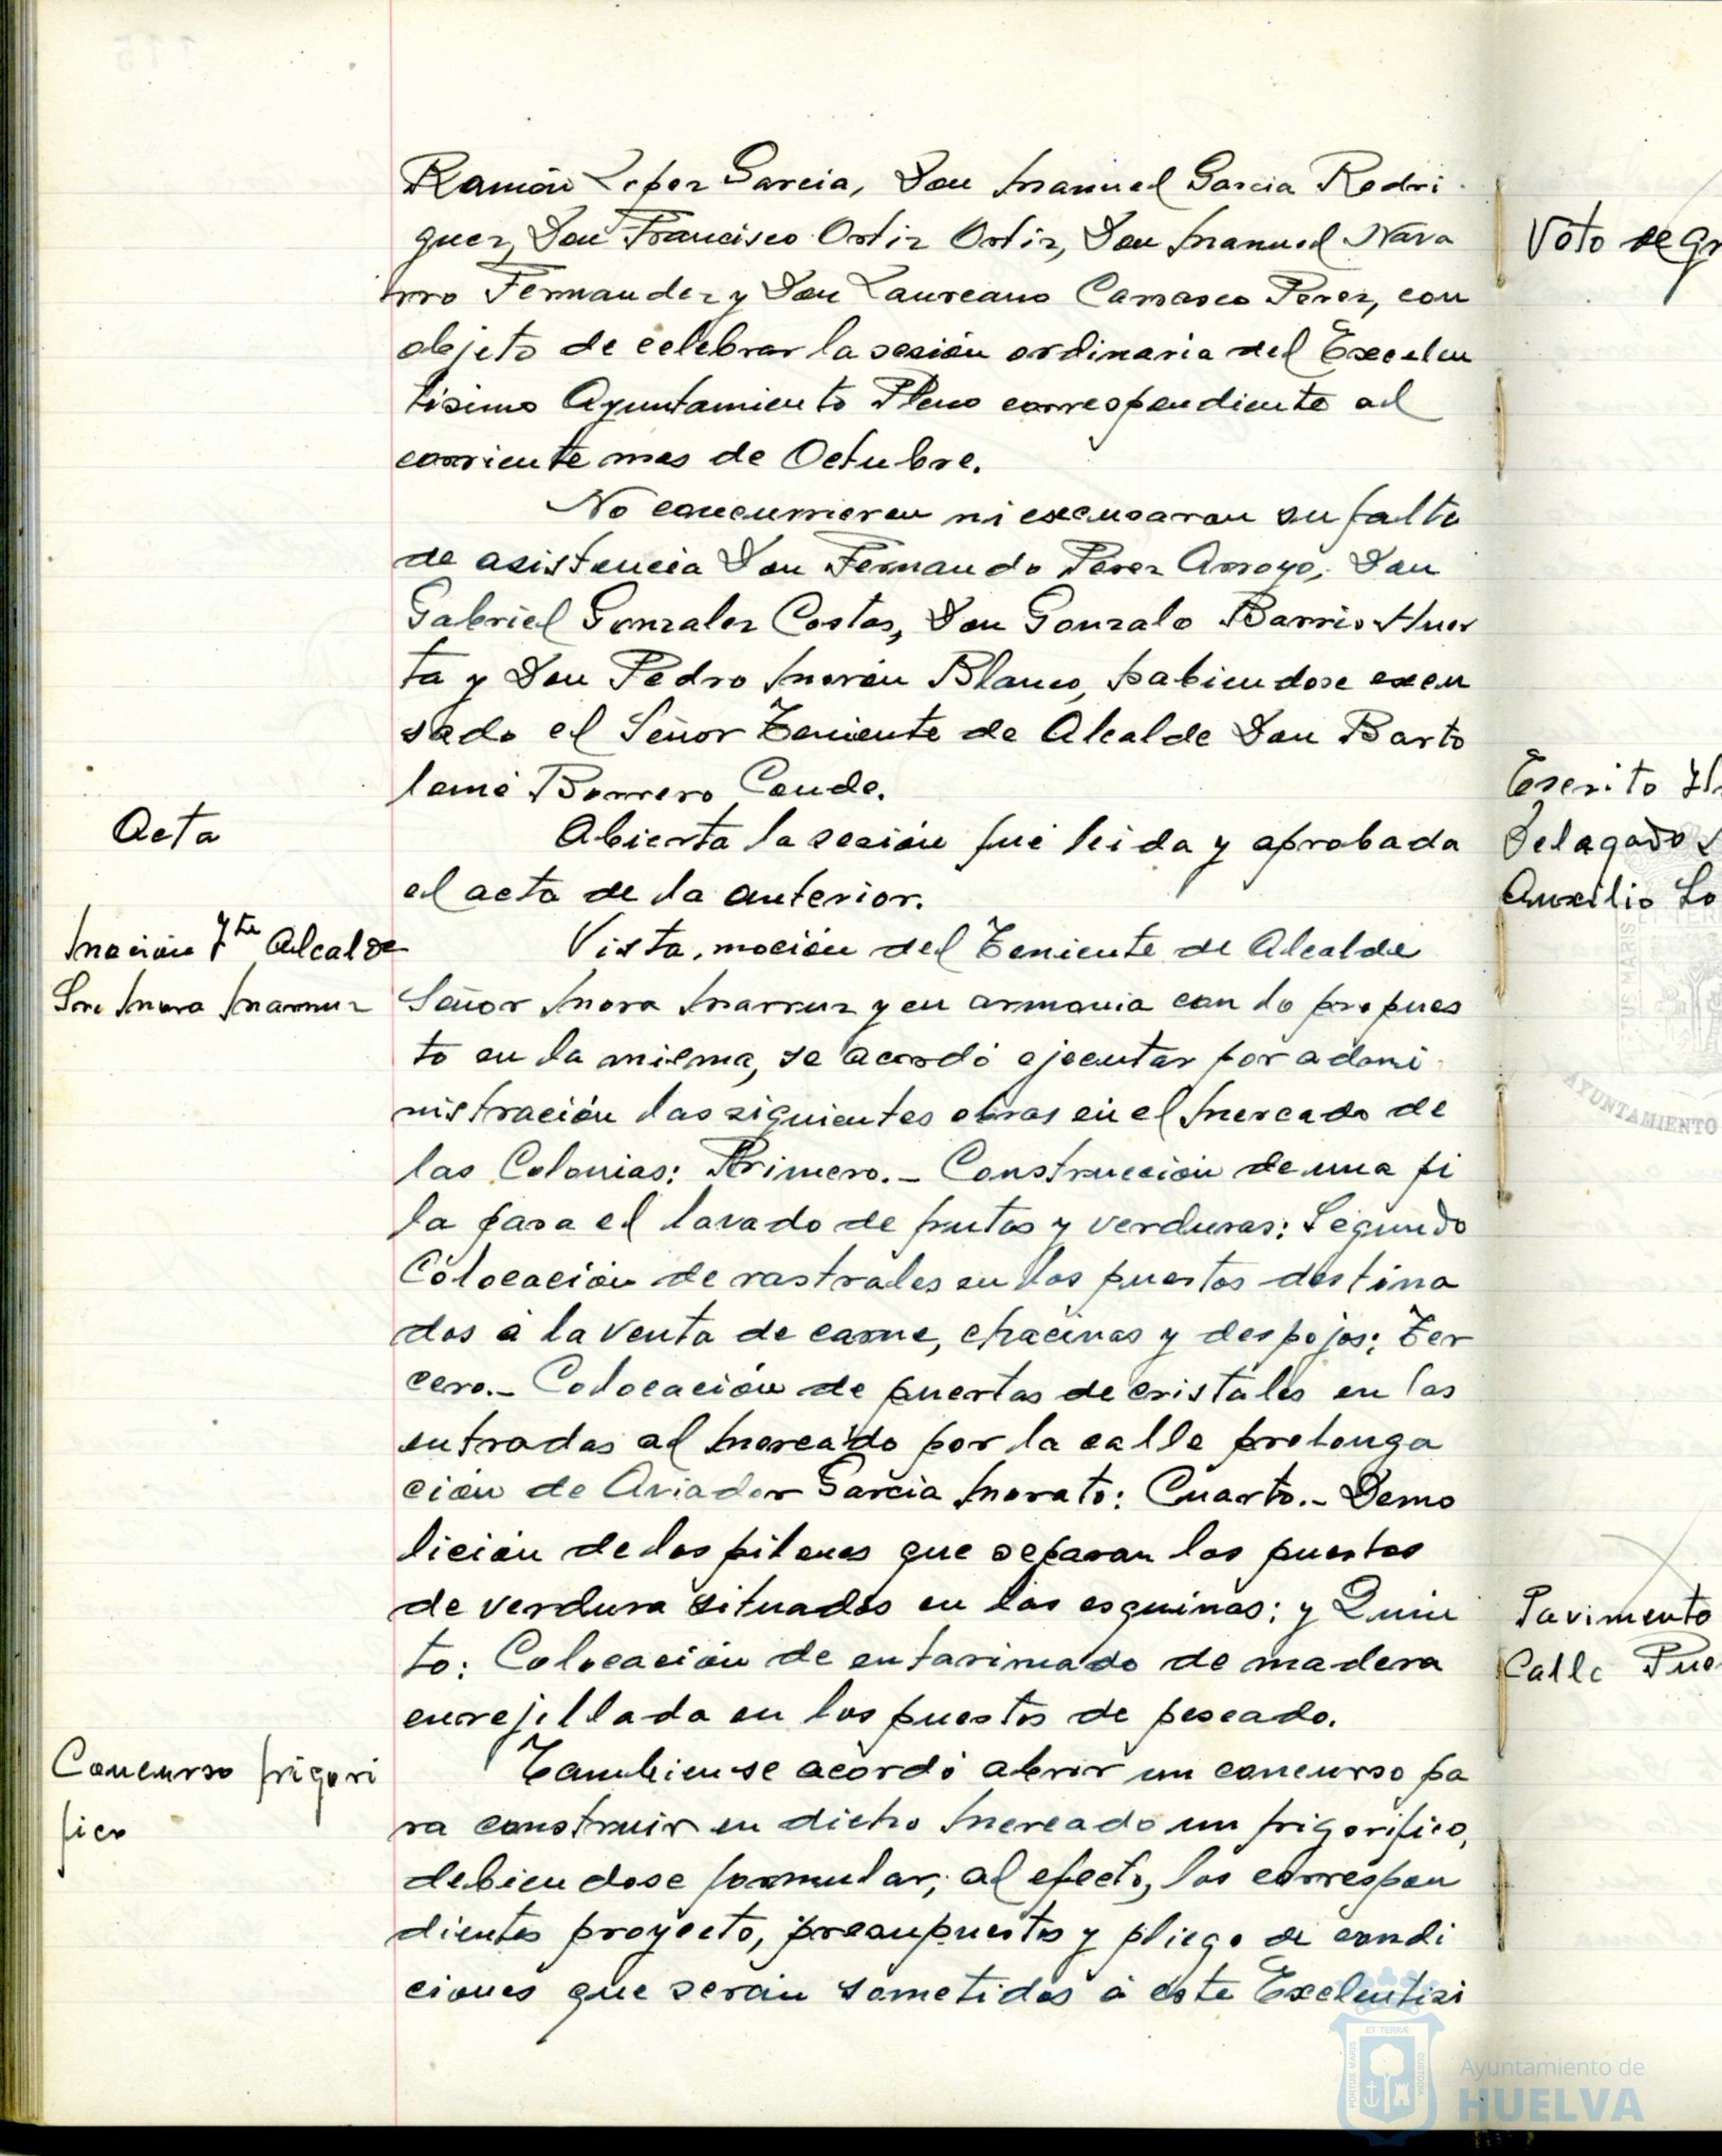 Ramón Lopez Garcia, Don Manuel Garcia Rodri
guez, Don Francisco Ortiz Ortiz, Don Manuel Nava
rro Fernandez y Don Laureano Carrasco Perez, con
objeto de celebrar la sesión ordinaria del Excelen
tisimo Ayuntamiento Pleno correspondiente al
corriente mes de Octubre.
No concurrieron ni excusaron su falta
de asistencia Don Fernando Perez Arroyo, Don
Gabriel Gonzalez Costas, Don Gonzalo Barrio Huer
ta y Don Pedro Morón Blanco, habiendose excu
sado el Señor Teniente de Alcalde Don Barto
lomé Borrero Conde.
Acta
Abierta la sesión fué leida y aprobada
el acta de la anterior.
Moción Tte Alcalde
Sr. Mora Marruz
Vista, moción del Teniente de Alcalde
Señor Mora Marruz y en armonia con lo propues
to en la misma, se acordó ejecutar por admi
nistración las siguientes obras en el Mercado de
las Colonias: Primero.- Construcción de una pi
la para el lavado de frutas y verduras: Segundo
Colocación de rastrales en los puestos destina
dos á la venta de carne, chacinas y despojos; Ter
cero.- Colocación de puertas de cristales en las
entradas al Mercado por la calle prolonga
ción de Aviador Garcia Morato: Cuarto.- Demo
lición de los pilares que separan los puestos
de verdura situados en las esquinas; y Quin
to: Colocación de entarimado de madera
enrejillada en los puestos de pescado.
Concurso frigori
fico
Tambien se acordó abrir un concurso pa
ra construir en dicho Mercado un frigorifico,
debiendose formular, al efecto, los correspon
dientes proyecto, presupuestos y pliego de condi
ciones que serán sometidos á este Exelentisi
Voto de gr
Escrito Il
Delegado
Auxilio So
AYUNTAMIENTO
Pavimento
Calle Pue
PORTUS MARIS
ET TERRÆ
CUSTODIA
Ayuntamiento de
HUELVA